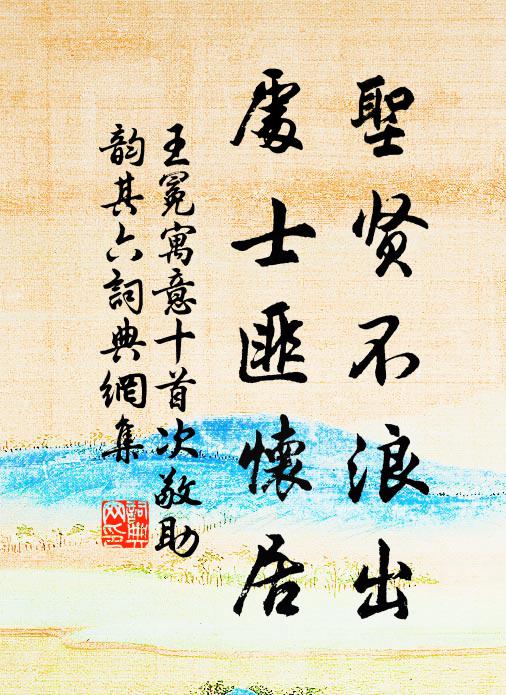 聖贤不浪出
處士匪懷居
王冕寓意十首次敬助
韵其六詞典網集
詞典网印